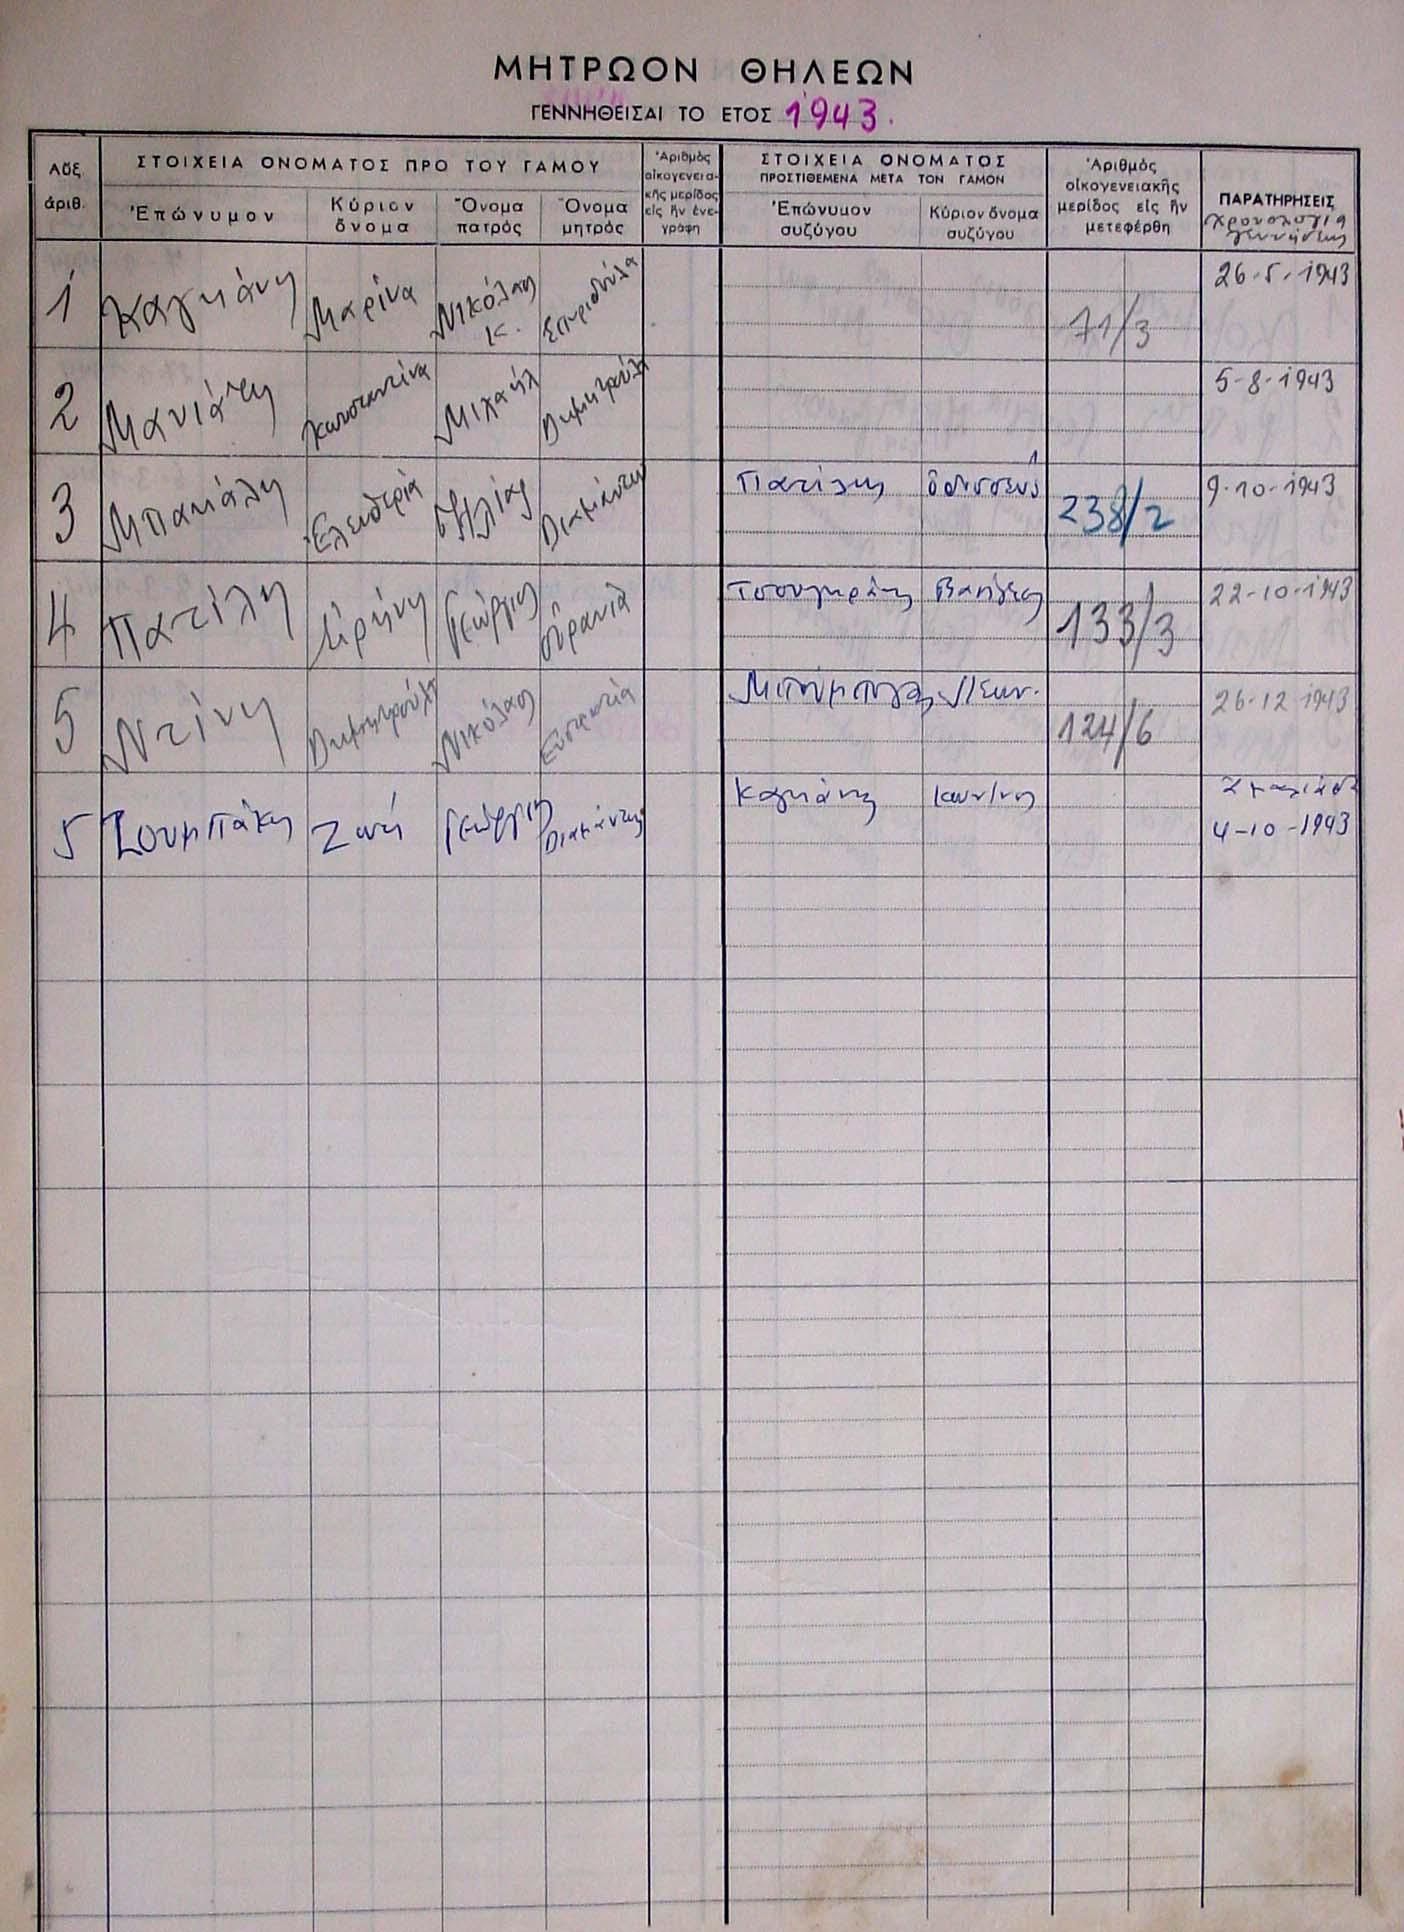 ΜΗΤΡΩΟΝ ΘΗΛΕΩΝ
ΓΕΝΝΗΘΕΙΣΑΙ ΤΟ ΕΤΟΣ 1943.
Αὔξ. ἀριθ.
ΣΤΟΙΧΕΙΑ ΟΝΟΜΑΤΟΣ ΠΡΟ ΤΟΥ ΓΑΜΟΥ
Ἐπώνυμον
Κύριον ὄνομα
Ὄνομα πατρός
Ὄνομα μητρός
Ἀριθμὸς οἰκογενεια-κῆς μερίδος εἰς ἣν ἐνε-γράφη
ΣΤΟΙΧΕΙΑ ΟΝΟΜΑΤΟΣ
ΠΡΟΣΤΙΘΕΜΕΝΑ ΜΕΤΑ ΤΟΝ ΓΑΜΟΝ
Ἐπώνυμον συζύγου
Κύριον ὄνομα συζύγου
Ἀριθμὸς οἰκογενειακῆς μερίδος εἰς ἣν μετεφέρθη
ΠΑΡΑΤΗΡΗΣΕΙΣ
χρονολογία γεννήσεως
1 Καγιάνη Μαρίνα Νικόλαος Κ. Σπυριδούλα 71/3 26-5-1943
2 Μανιάτη Κωνσταντίνα Μιχαήλ Δημητρούλα 5-8-1943
3 Μπακάλη Ἐλευθερία Ἠλίας Διαμάντω Πατίλης Ὀδυσσεύς 238/2 9-10-1943
4 Πατίλη Εἰρήνη Γεώργιος Οὐρανία Βασίλειος 133/3 22-10-1943
5 Ντίνη Δημητρούλα Νικόλαος Εὐσταθία 124/6 26-12-1943
5 Ζουμπάκη Ζωή Γεώργιος Διαμάντω Καγιάνης Ιωάννης 4-10-1943